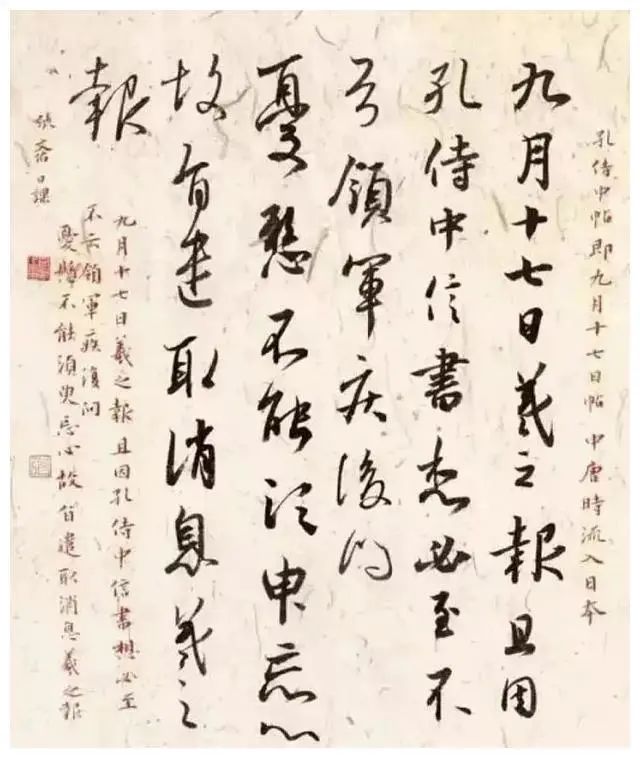 孔侍中帖即九月十七日帖 中唐時流入日本
九月十七日羲之報且因
孔侍中信書想必至不
知領軍疾後問
憂懸不能須臾忘心
故旨遣取消息羲之
報
九月十七日羲之報且因孔侍中信書想必至
不知領軍疾後問
憂懸不能須臾忘心故旨遣取消息羲之報
齋日課